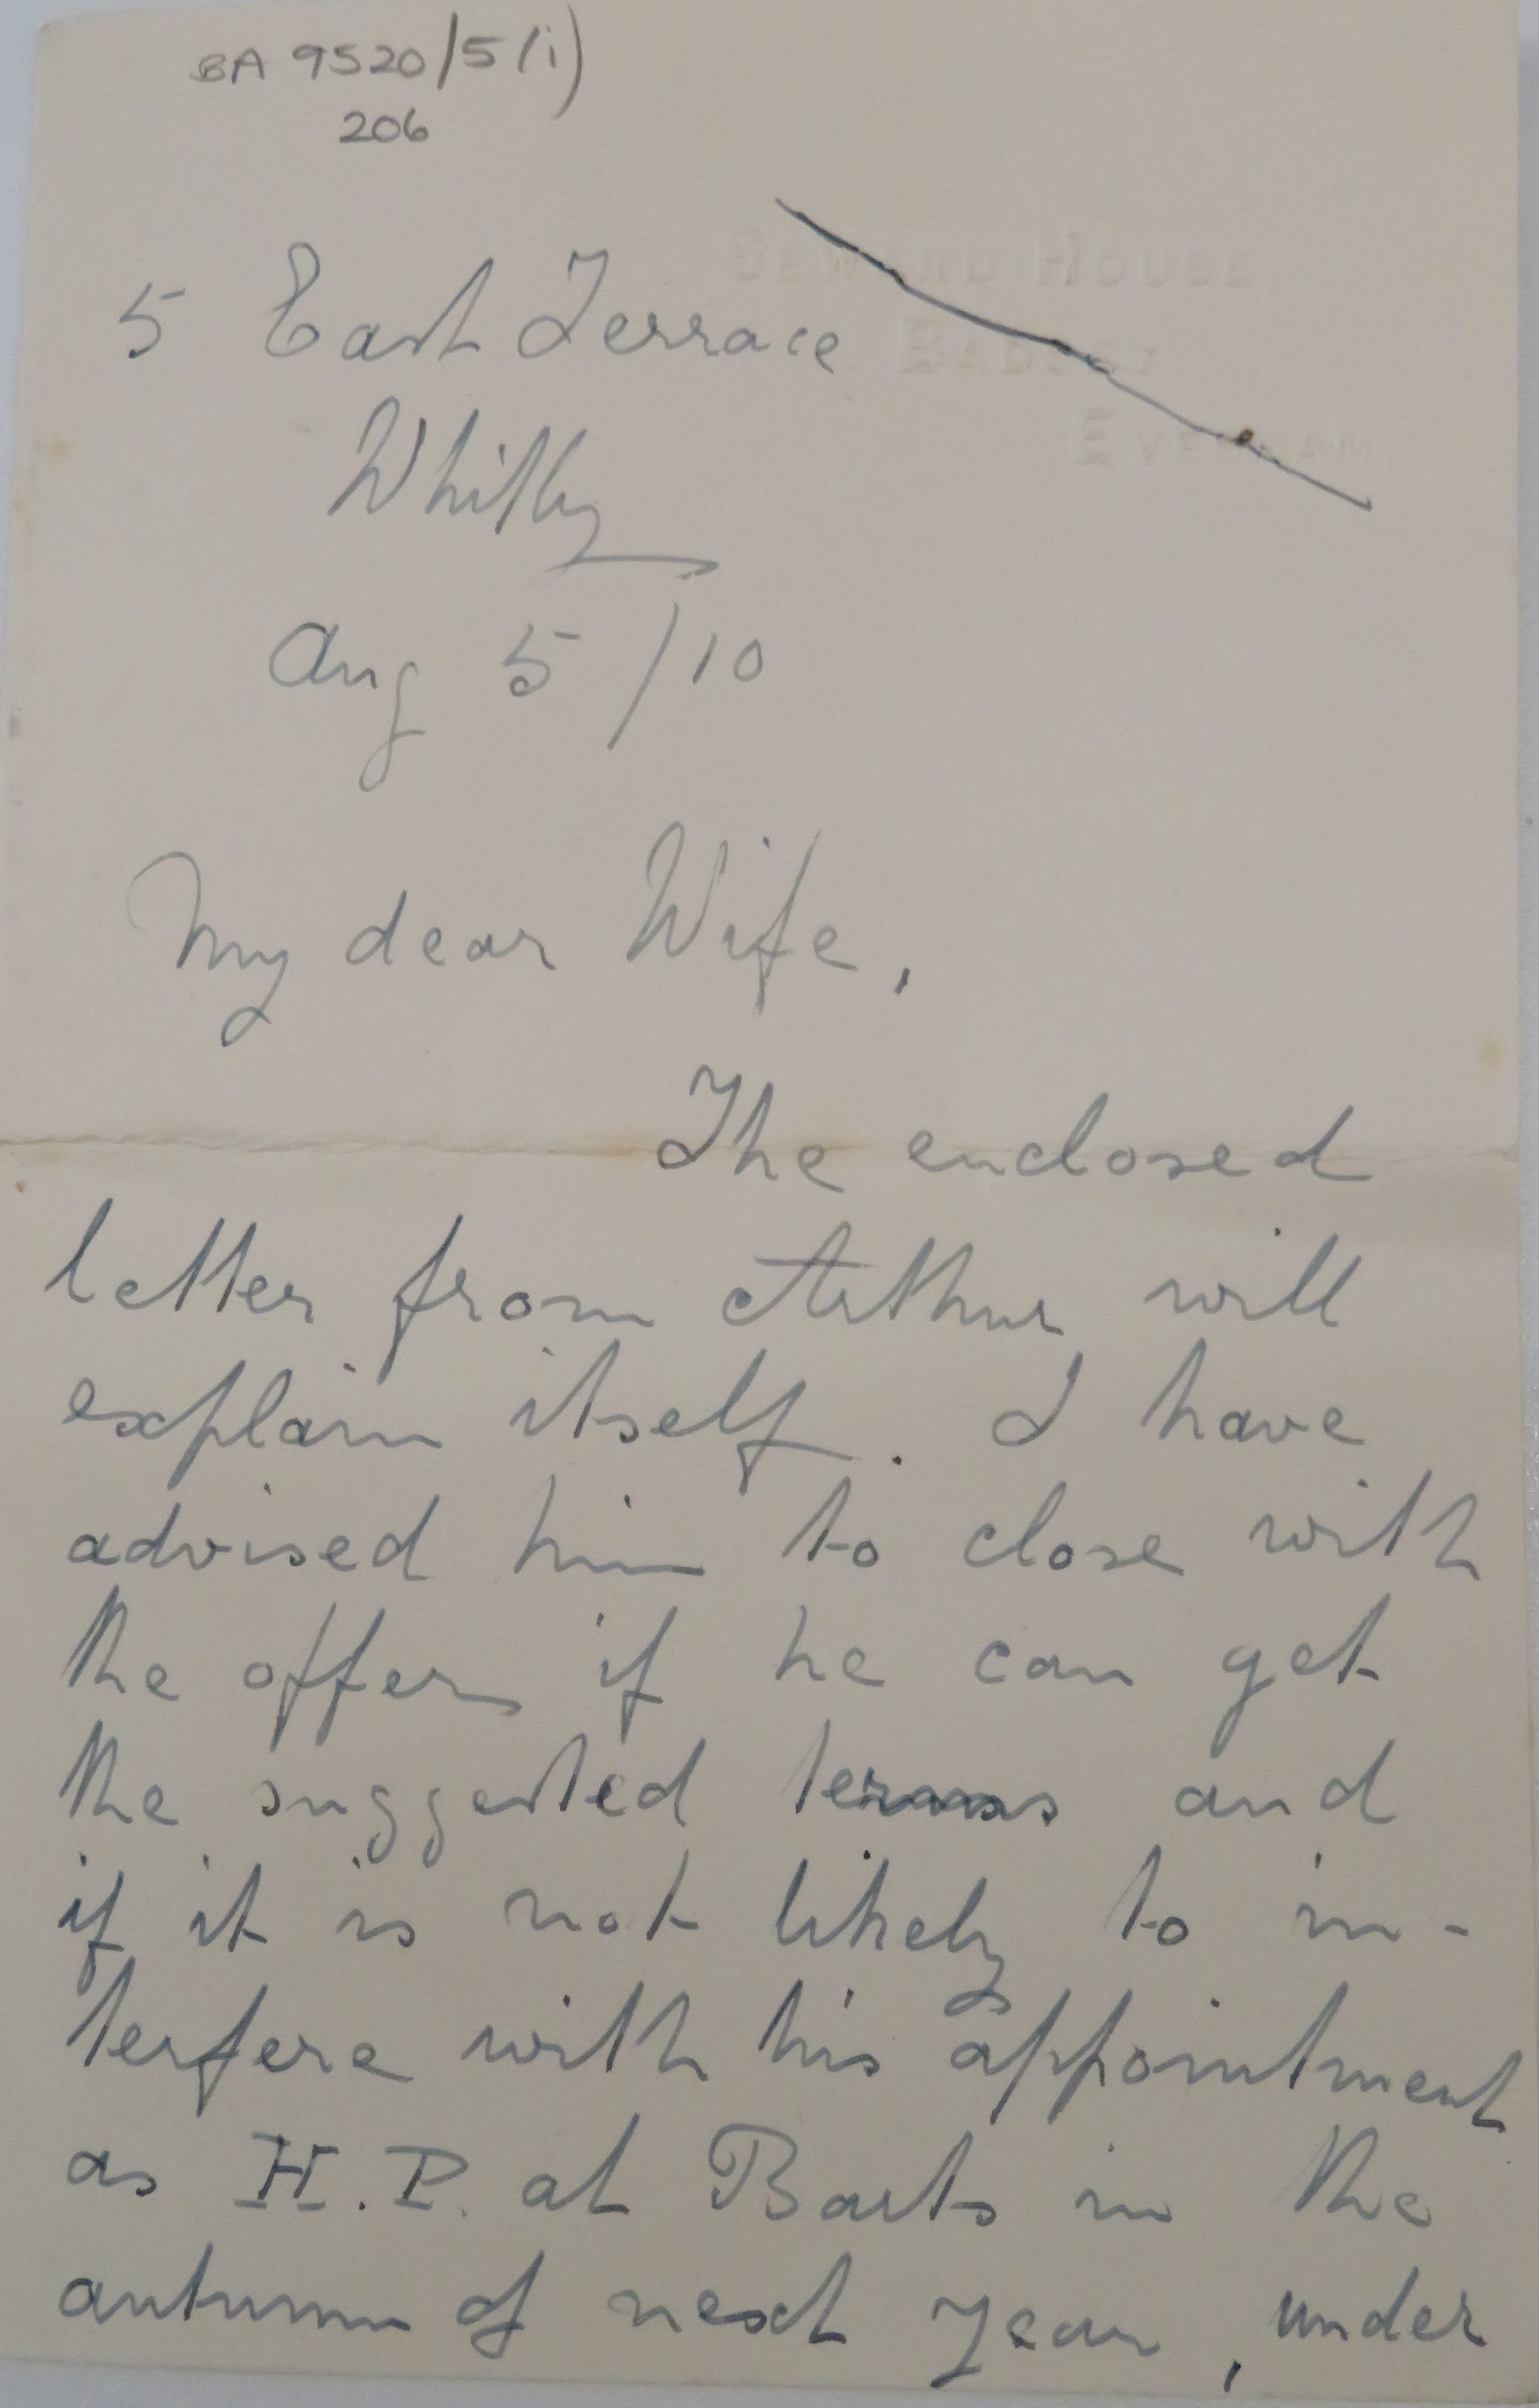 BA 9520/5(i)
206
SEWARD HOUSE,
BADSEY,
EVESHAM.
5 East Terrace
Whitby
Aug 5/10
My dear Wife,
The enclosed
letter from Arthur will
explain itself. I have
advised him to close with
the offer if he can get
the suggested terms and
if it is not likely to in-
terfere with his appointment
as H.P. at Barts in the
autumn of next year, under